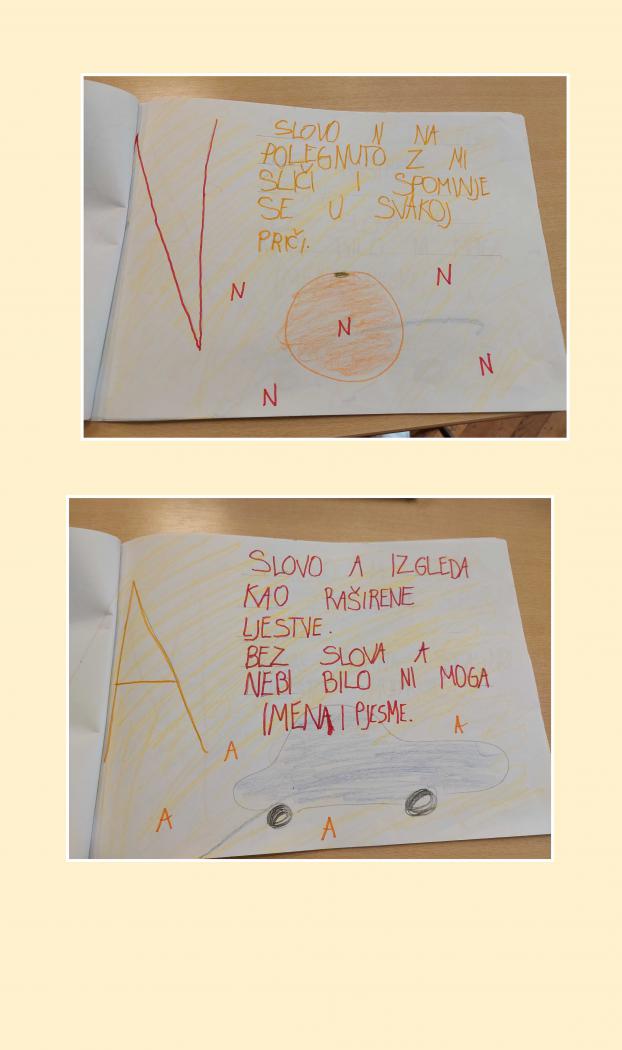 SLOVO N NA
POLEGNUTO Z MI
SLIČI I SPOMINJE
SE U SVAKOJ
PRIČI.
N
N
N
N
N
SLOVO A IZGLEDA
KAO RAŠIRENE
LJESTVE.
BEZ SLOVA A
NEBI BILO NI MOGA
IMENA I PJESME.
A
A
A
A
A